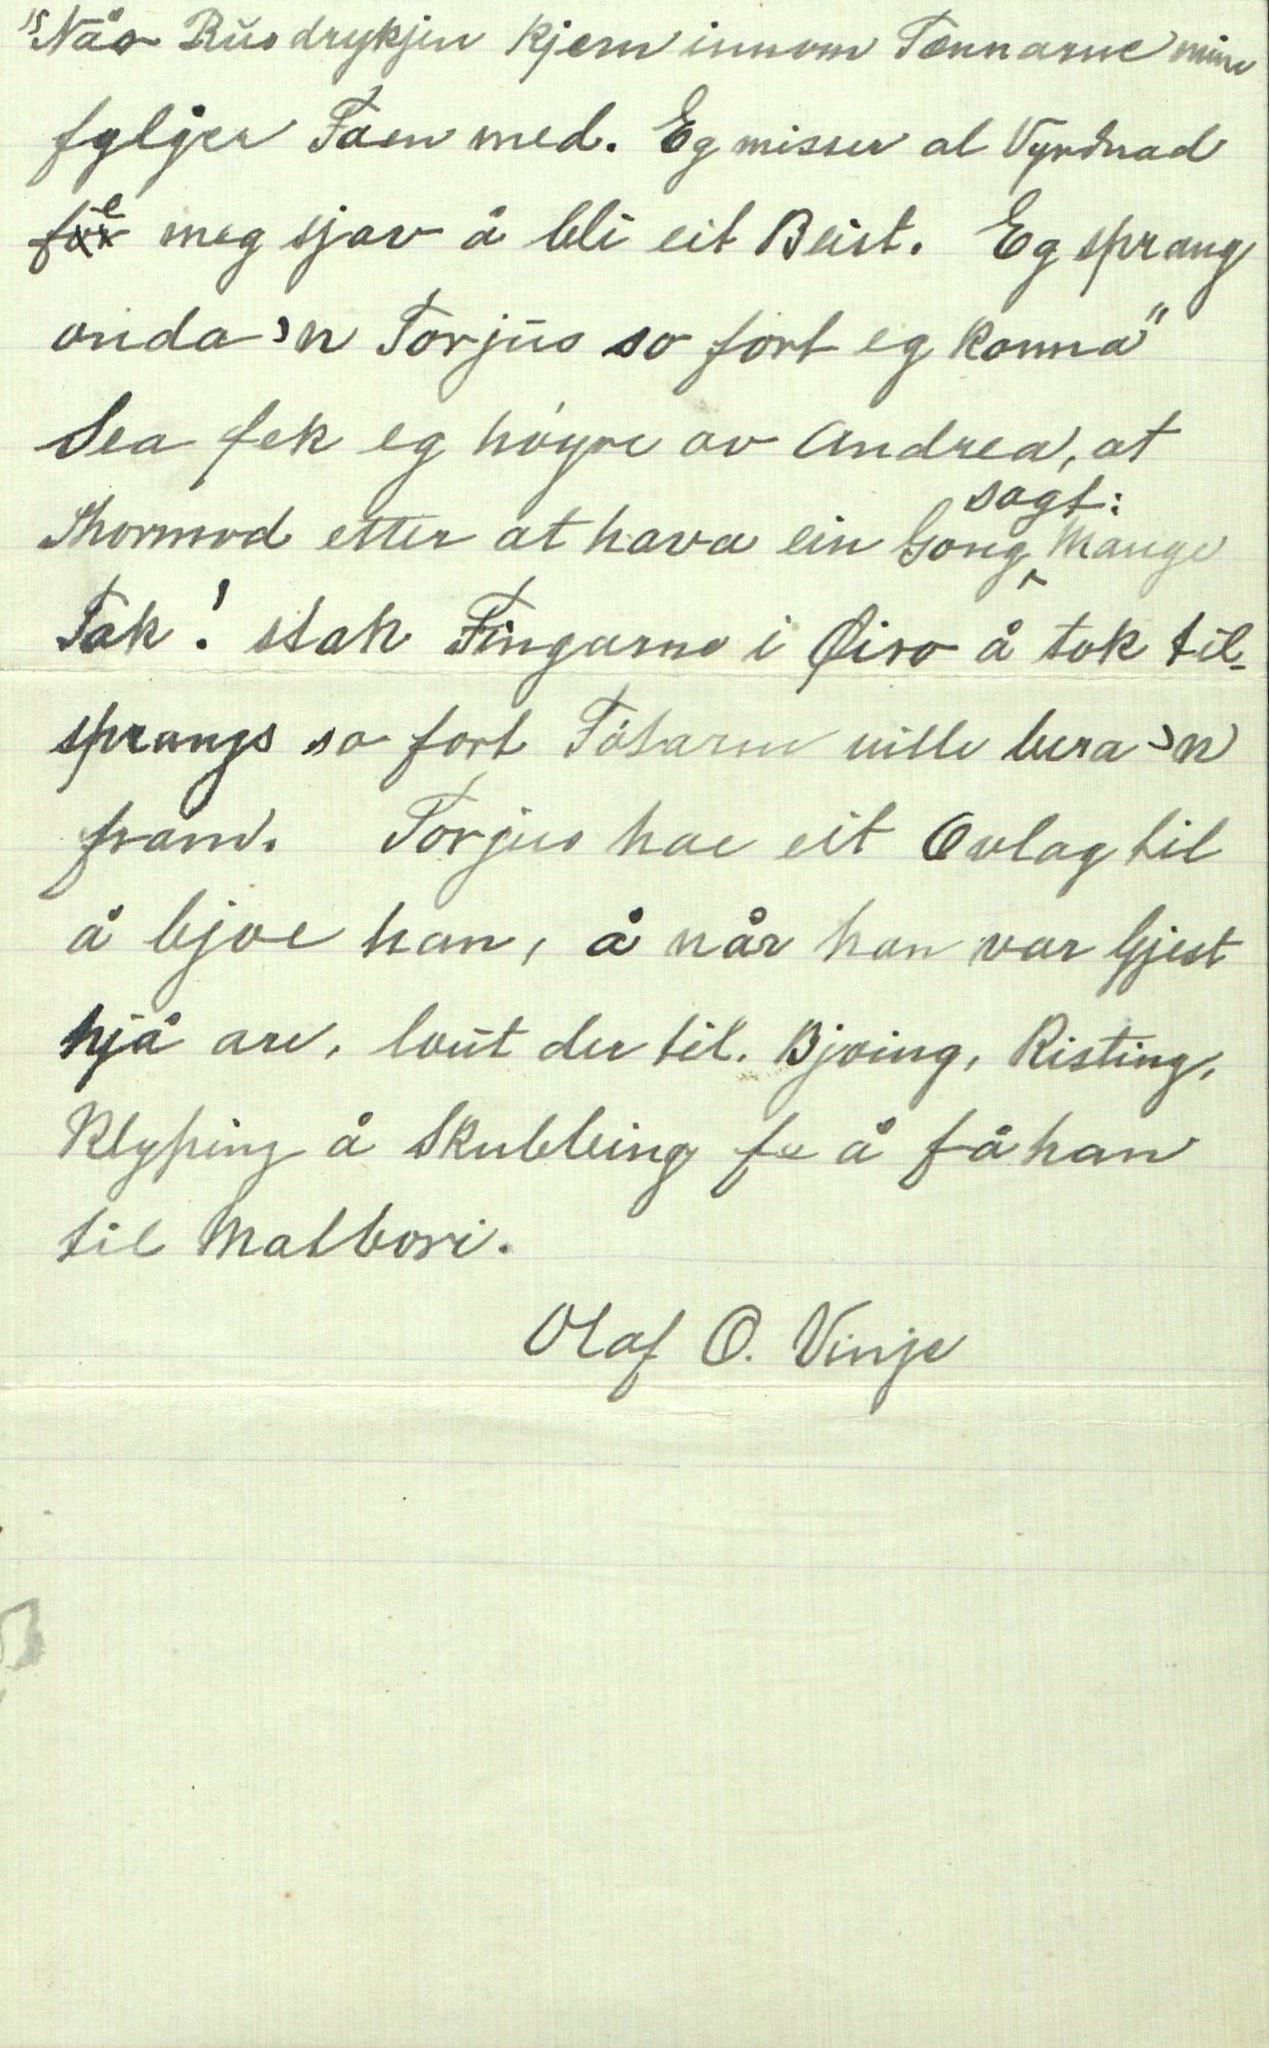 "Når Rūsdrykjen kjem innom Tennarne mine
fylgjer Faen med. Eg misser al Vyrdnad
fe meg sjav å bli eit Beist. Eg sprang
onda 'n Torjūs so fort eg konna"
Sea fek eg høyre av Andrea, at
Thormod etter at hava ein Gong sagt: Mange
Tak! stak Fingarne i Øiro å tok til-
sprangs so fort Føtarne ville bera 'n
fram. Torjus hae eit Ovlag til
å bjoe han, å når han var Gjest
hjå are, lout der til. Bjoing, Risting,
Klyping å Skubbing fe å få han
til Matbori.
Olaf O. Vinje